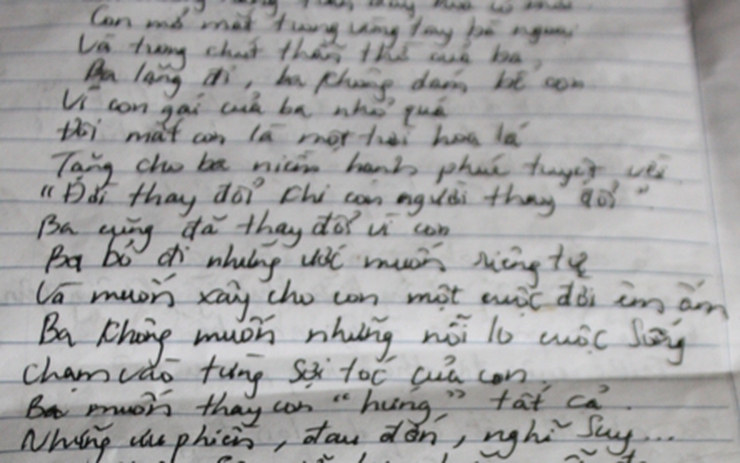 Con mở mắt trong vòng tay bé người
Và trong chút thần thể của ba,
Ba lặng đi, ba không dám bế con
Vì con gái của ba nhỏ quá
Đôi mắt con là một trời hoa lá
Tặng cho ba niềm hạnh phúc tuyệt vời
"Đời thay đổi khi con người thay đổi"
Ba cũng đã thay đổi vì con
Ba bỏ đi những ước muốn riêng tự
Và muốn xây cho con một cuộc đời êm ấm
Ba không muốn những nỗi lo cuộc sống
Chạm vào từng sợi tóc của con.
Ba muốn thay con "hứng" tất cả.
Những ưu phiền, đau đớn, nghĩ suy...